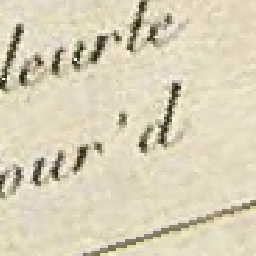 leurle
our'd